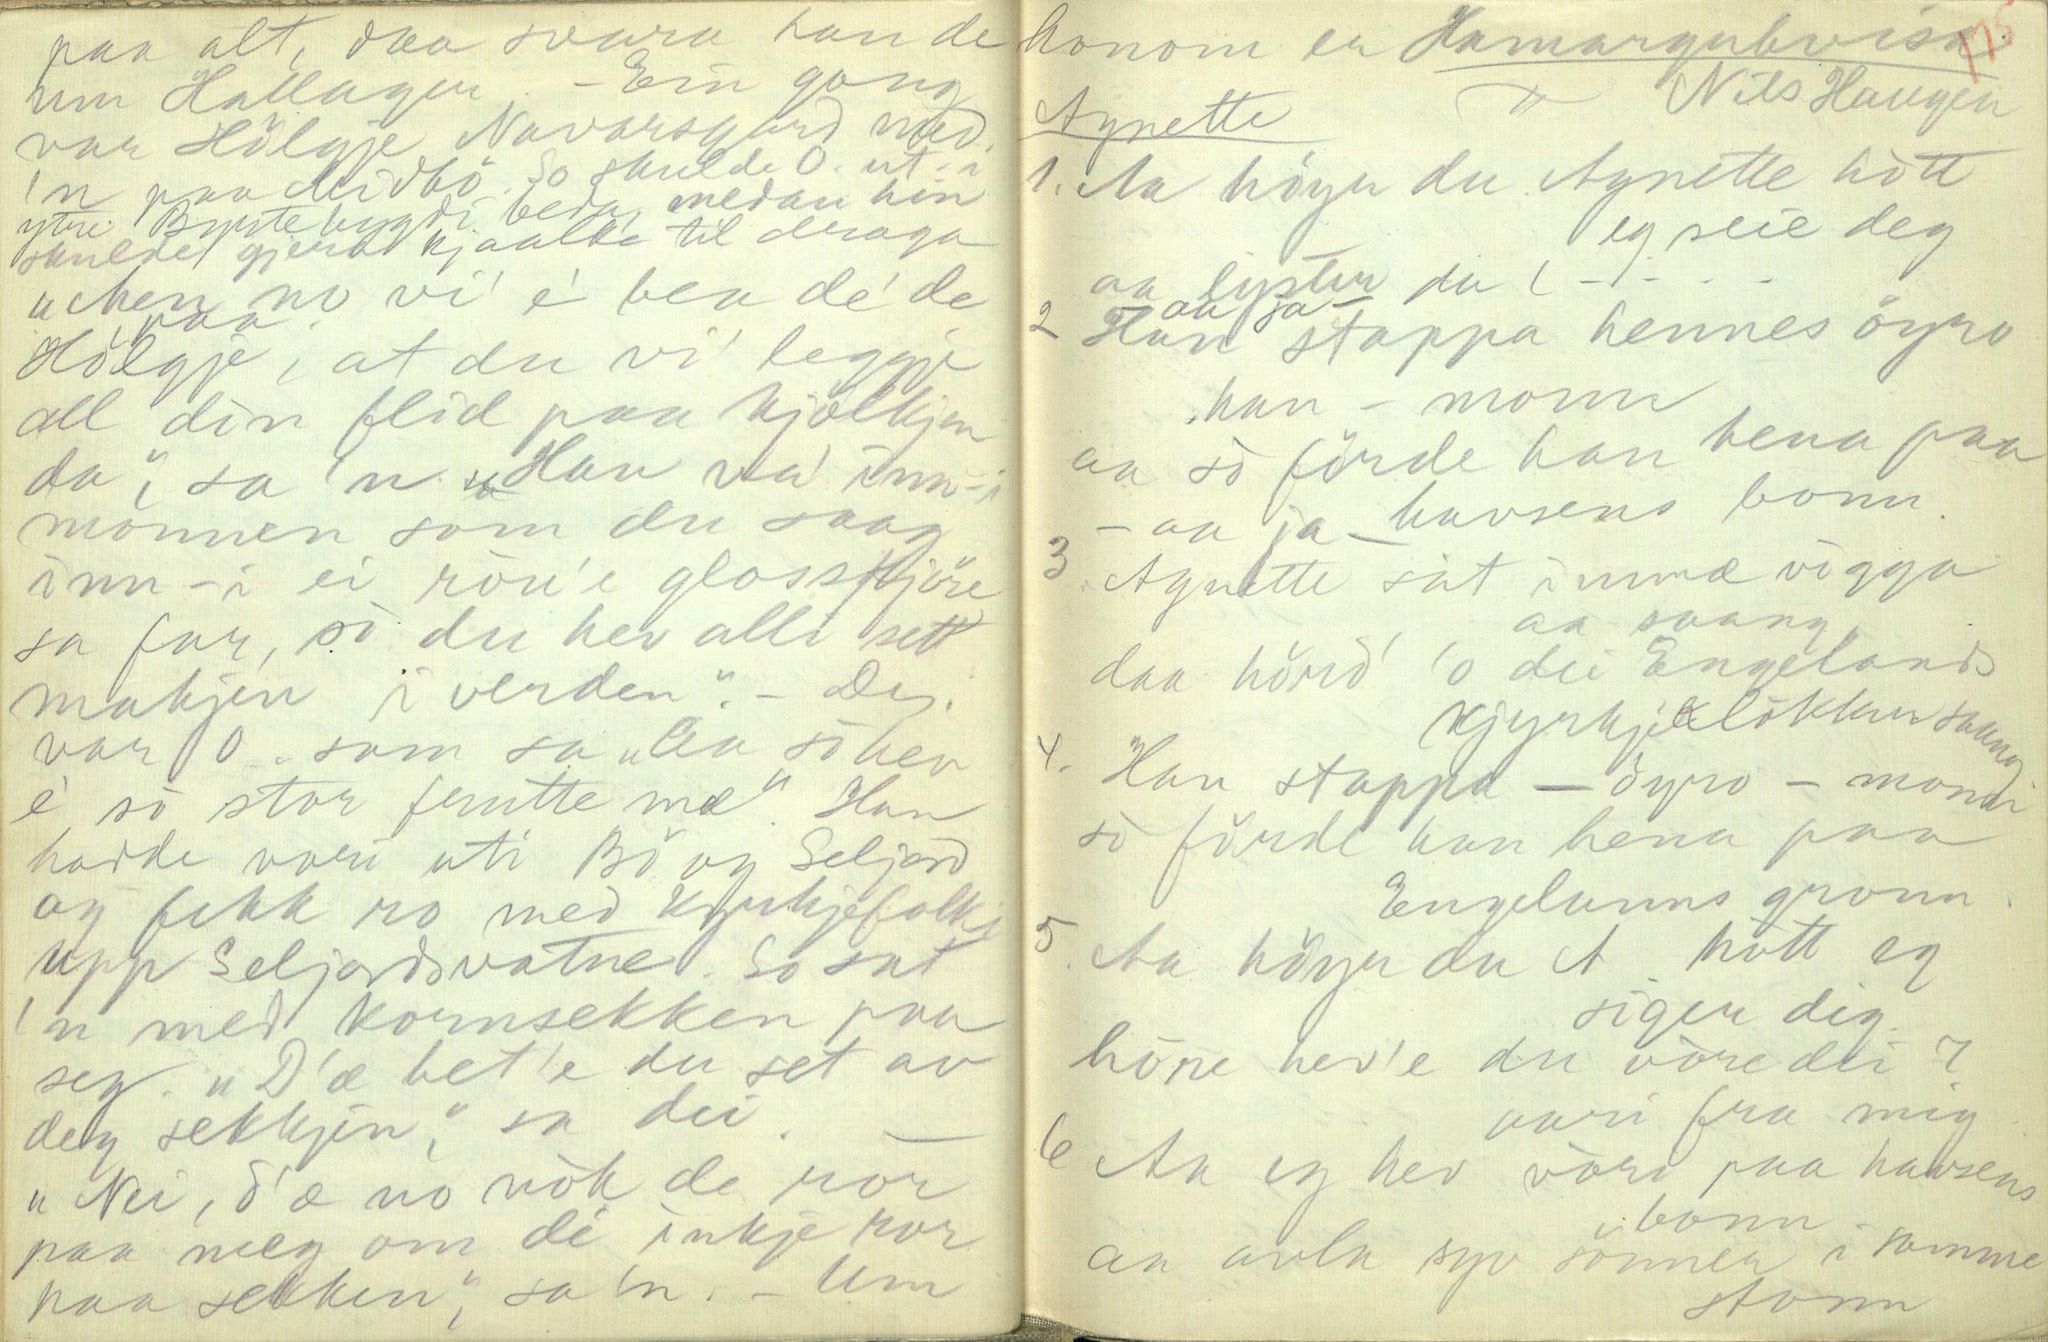 paa alt, daa svara han de
um Hallager. – Ein gong
var Hölgje Navarsgard med
'n paa Meidbö. So skulde O. ut-i
ytre Byrtebygdi beda, medan hin
skulde gjera kjaalke til draga
"Men no vi' é bea dé' de
paa
Hölgje, at du vi' leggje
all din flid paa kjölkjen
da", sa 'n. "Han va' inn-i
mònnen som du saag
inn-i ei röu'e glosskjöre
sa far, sò du hev alli sett
makjen i verden". – De
var O. som sa "Aa sò hev
é sò stor frutte mæ". Han
hadde vori uti Bö og Seljord
og fekk ro med kyrkjefolkje
upp Seljordsvatne. So sat
'n med kornsekken paa
seg. "D'æ bet'e du set av
deg sekkjen", sa dei. —
"Nei, d'æ no nòk de ror
paa meg om de inkje ror
paa sekken", sa 'n. – Um
honom er Hamargubvisa.
175
Nils Haugen
Agnette
1. Aa höyr du Agnette hòtt
eg seie deg
aa lyster du ( - - - -
aa ja –
2 Han stappa hennes öyro
han – monn
aa sò förde han hena paa
– aa ja – havsens bonn.
3. Agnette sat inmæ vigga
aa saang,
daa hörd' 'o dei Engelands
kjyrkjeklòkkur saang
4. Han stappa — öyro – monn
sò förde han hena paa
Engelanns gronn.
5. Aa höyr du A. hòtt eg
siger dig
hòre hev'e du vòre dei ?
aari fra mig
6 Aa eg hev vòri paa havsens
bonn
aa avla syv sönner i samme
stonn